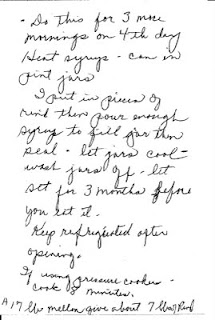 - Do this for 3 more
mornings on 4th day
Heat syrup - can in
pint jars
I put in pieces of
rind then pour enough
syrup to fill jar then
seal - let jars cool -
wash jars off - let
set for 3 months before
you eat it.
Keep refrigerated after
opening.
If using pressure cooker -
cook 8 minutes.
A 17 lb mellon give about 7 lbs of Rind